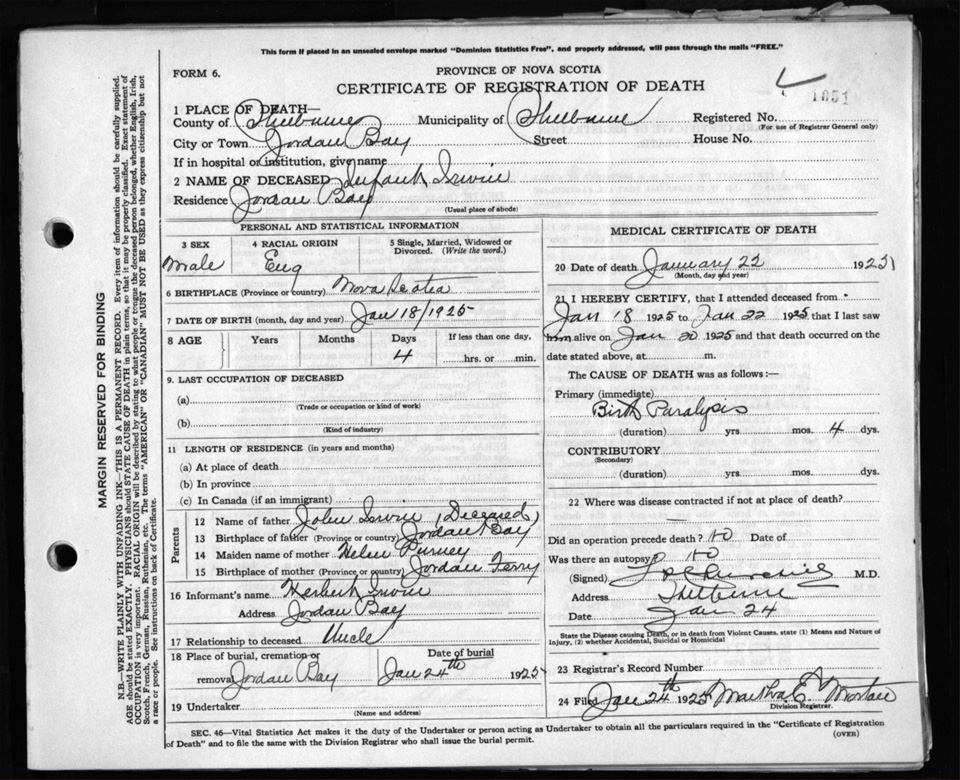 This form if placed in an unsealed envelope marked "Dominion Statistics Free", and properly addressed, will pass through the mails "FREE."
FORM 6.
PROVINCE OF NOVA SCOTIA
CERTIFICATE OF REGISTRATION OF DEATH
1051
1 PLACE OF DEATH—
County of Shelburne Municipality of Shelburne Registered No.
(For use of Registrar General only)
City or Town Jordan Bay Street House No.
If in hospital or institution, give name
2 NAME OF DECEASED Infant Irwin
Residence Jordan Bay
(Usual place of abode)
PERSONAL AND STATISTICAL INFORMATION
3 SEX
Male
4 RACIAL ORIGIN
Eng
5 Single, Married, Widowed or Divorced. (Write the word.)
6 BIRTHPLACE (Province or country) Nova Scotia
7 DATE OF BIRTH (month, day and year) Jan 18/1925
8 AGE Years Months Days If less than one day,
4 hrs. or min.
9. LAST OCCUPATION OF DECEASED
(a)
(Trade or occupation or kind of work)
(b)
(Kind of industry)
11 LENGTH OF RESIDENCE (in years and months)
(a) At place of death
(b) In province
(c) In Canada (if an immigrant)
Parents
12 Name of father John Irwin (Deceased)
13 Birthplace of father (Province or country) Jordan Bay
14 Maiden name of mother Helen Purney
15 Birthplace of mother (Province or country) Jordan Ferry
16 Informant's name Herbert Irwin
Address Jordan Bay
17 Relationship to deceased Uncle
18 Place of burial, cremation or Date of burial
removal Jordan Bay Jan 24th 1925
19 Undertaker
(Name and address)
MEDICAL CERTIFICATE OF DEATH
20 Date of death January 22 1925
(Month, day and year)
21 I HEREBY CERTIFY, that I attended deceased from
Jan 18 1925 to Jan 22 1925 that I last saw
him alive on Jan 20 1925 and that death occurred on the
date stated above, at m.
The CAUSE OF DEATH was as follows:—
Primary (immediate)
Birth Paralysis
(duration) yrs mos. 4 dys.
CONTRIBUTORY
(Secondary)
(duration) yrs. mos. dys.
22 Where was disease contracted if not at place of death?
—
Did an operation precede death? no Date of
Was there an autopsy? no
(Signed) Churchill M.D.
Address Shelburne
Date Jan 24
State the Disease causing Death, or in death from Violent Causes, state (1) Means and Nature of
Injury, (2) whether Accidental, Suicidal or Homicidal
23 Registrar's Record Number
24 Filed Jan 24th 1925 Martha E. Morton
Division Registrar.
SEC. 46—Vital Statistics Act makes it the duty of the Undertaker or person acting as Undertaker to obtain all the particulars required in the "Certificate of Registration
of Death" and to file the same with the Division Registrar who shall issue the burial permit.
(OVER)
MARGIN RESERVED FOR BINDING
N.B.—WRITE PLAINLY WITH UNFADING INK—THIS IS A PERMANENT RECORD. Every item of information should be carefully supplied.
AGE should be stated EXACTLY. PHYSICIANS should STATE CAUSE OF DEATH in plain terms, so that it may be properly classified. Exact statement of
OCCUPATION is very important. RACIAL ORIGIN will be described by stating to what people or tongue the deceased person belonged, whether English, Irish,
Scotch, French, German, Russian, Ruthenian, etc. The terms "AMERICAN" or "CANADIAN" MUST NOT BE USED as they express citizenship but not
a race or people. See instructions on back of Certificate.